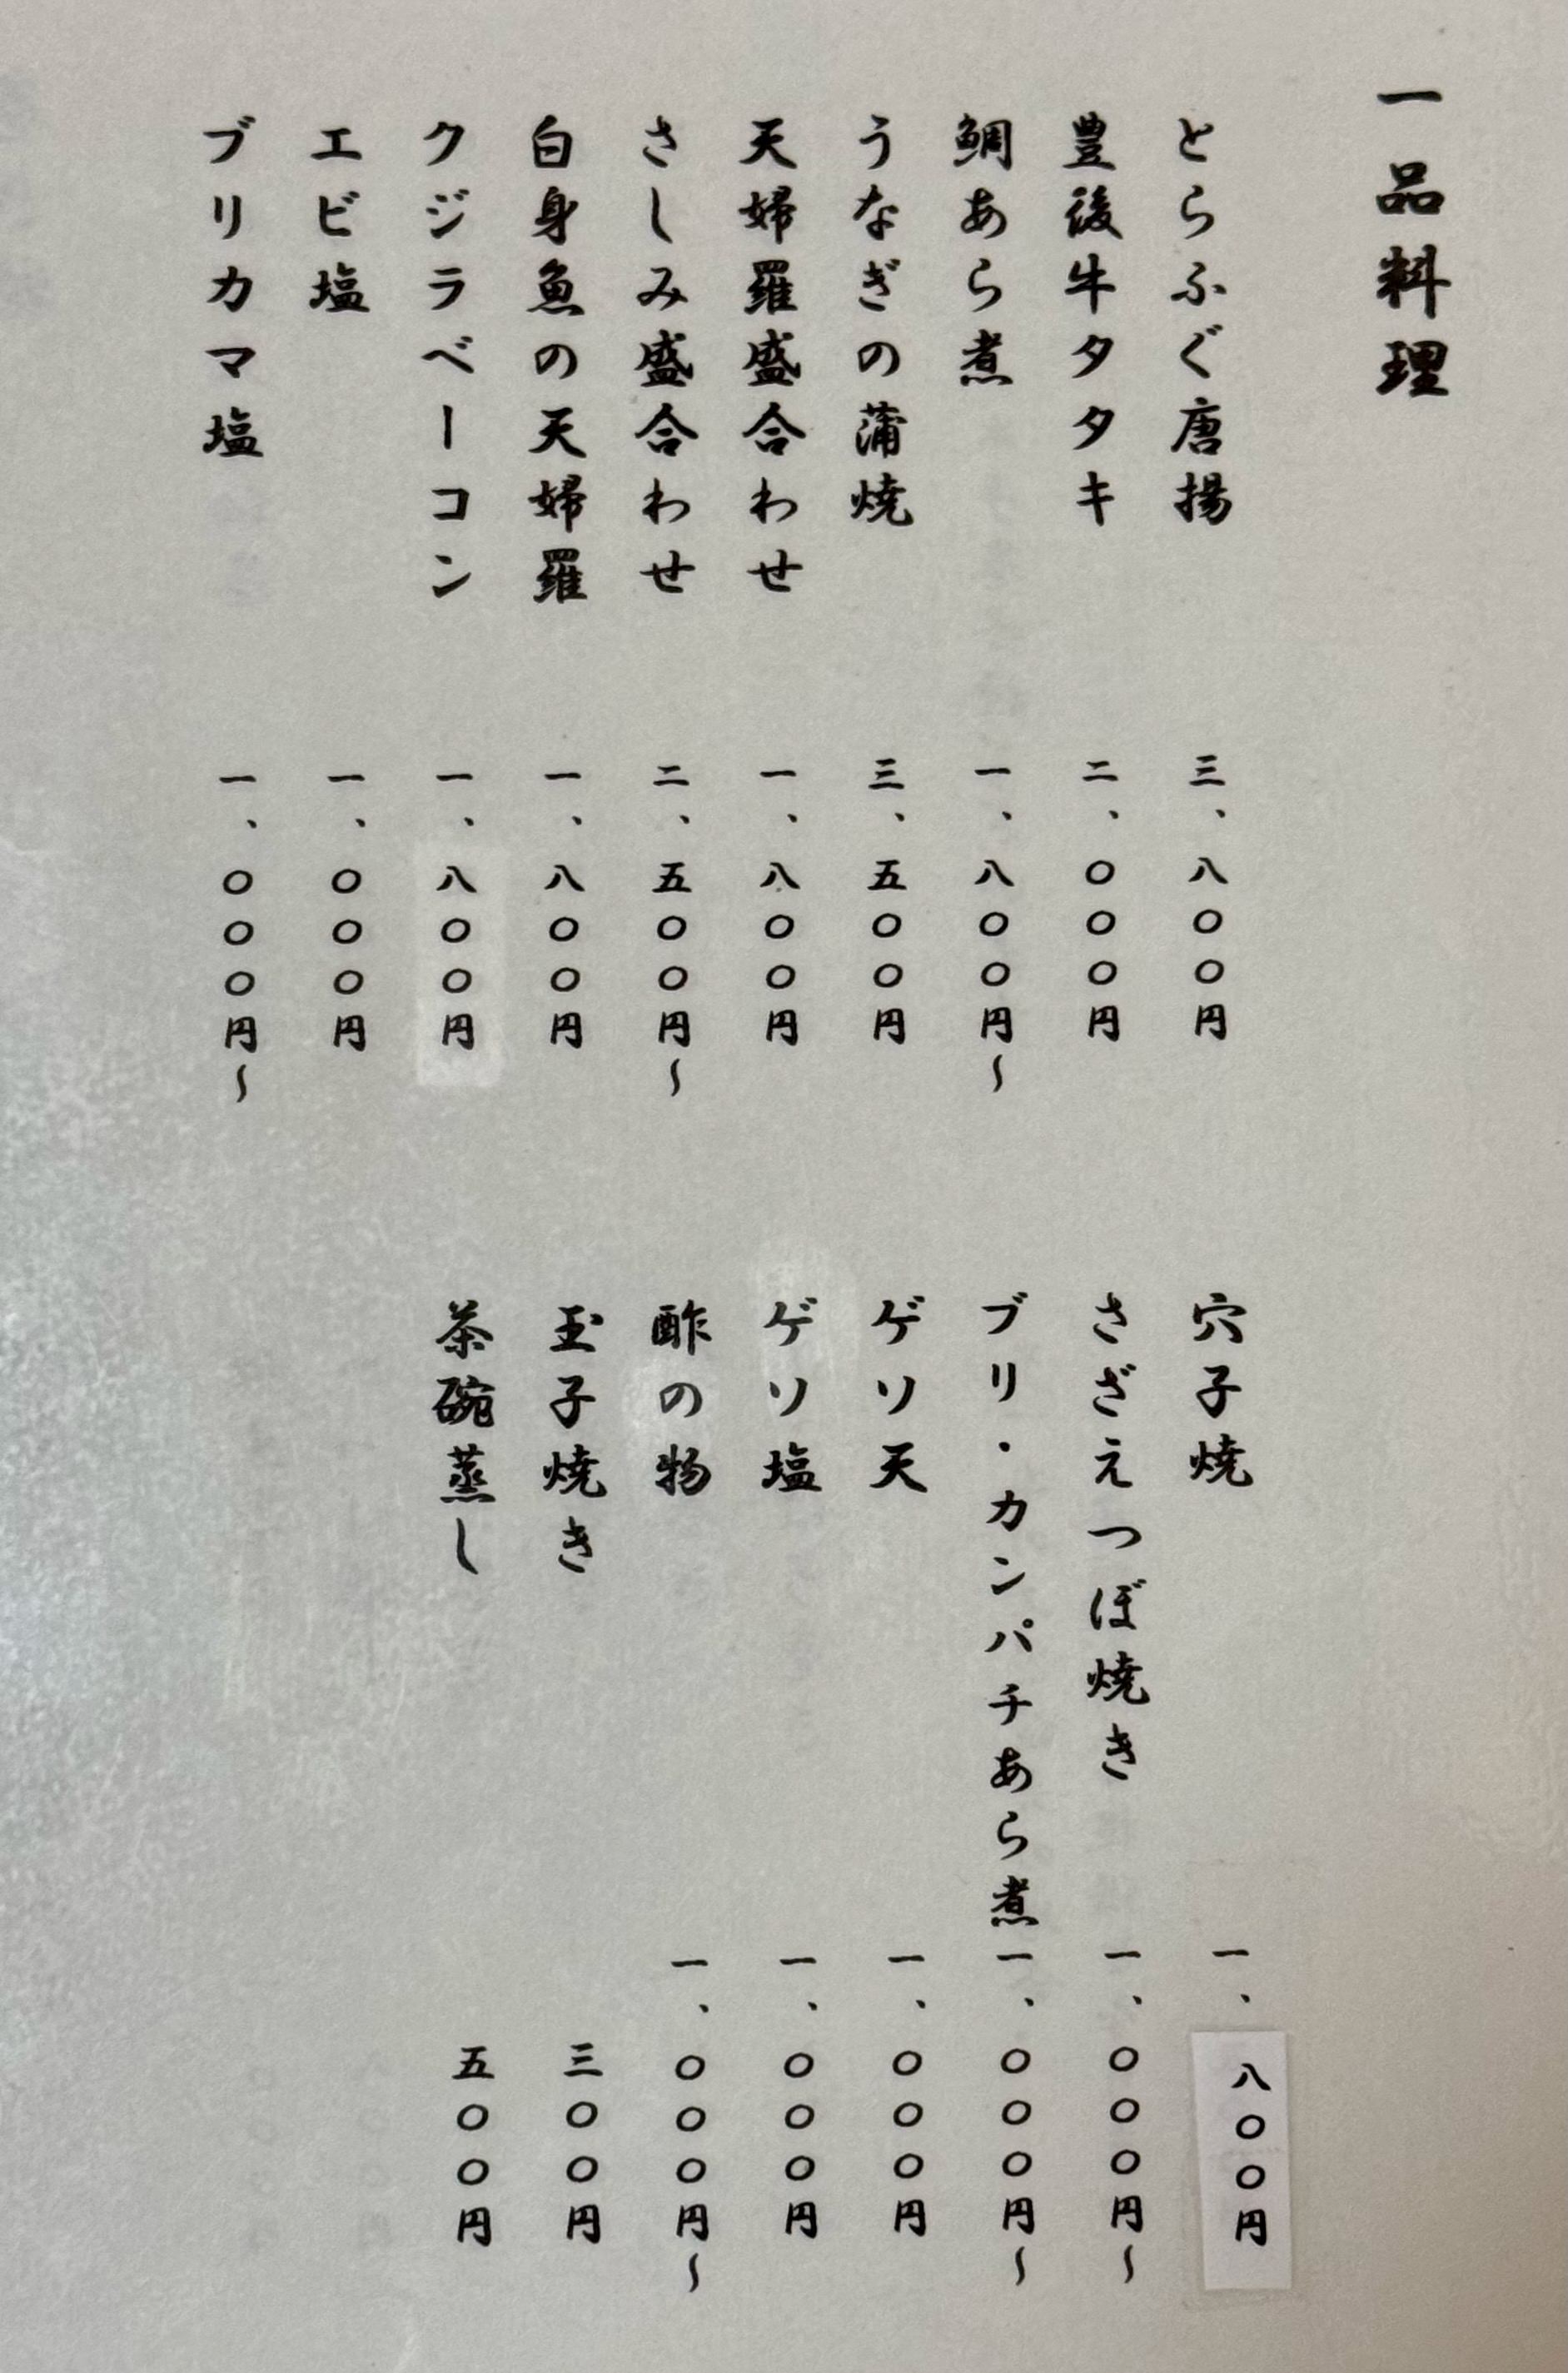 一品料理
とらふぐ唐揚 三、八〇〇円
豊後牛タタキ 二、〇〇〇円
鯛あら煮 一、八〇〇円〜
うなぎの蒲焼 三、五〇〇円
天婦羅盛合わせ 一、八〇〇円
さしみ盛合わせ 二、五〇〇円〜
白身魚の天婦羅 一、八〇〇円
クジラベーコン 一、八〇〇円
エビ塩 一、〇〇〇円
ブリカマ塩 一、〇〇〇円〜
穴子焼 一、八〇〇円
さざえつぼ焼き 一、〇〇〇円〜
ブリ・カンパチあら煮 一、〇〇〇円〜
ゲソ天 一、〇〇〇円
ゲソ塩 一、〇〇〇円
酢の物 一、〇〇〇円〜
玉子焼き 三〇〇円
茶碗蒸し 五〇〇円